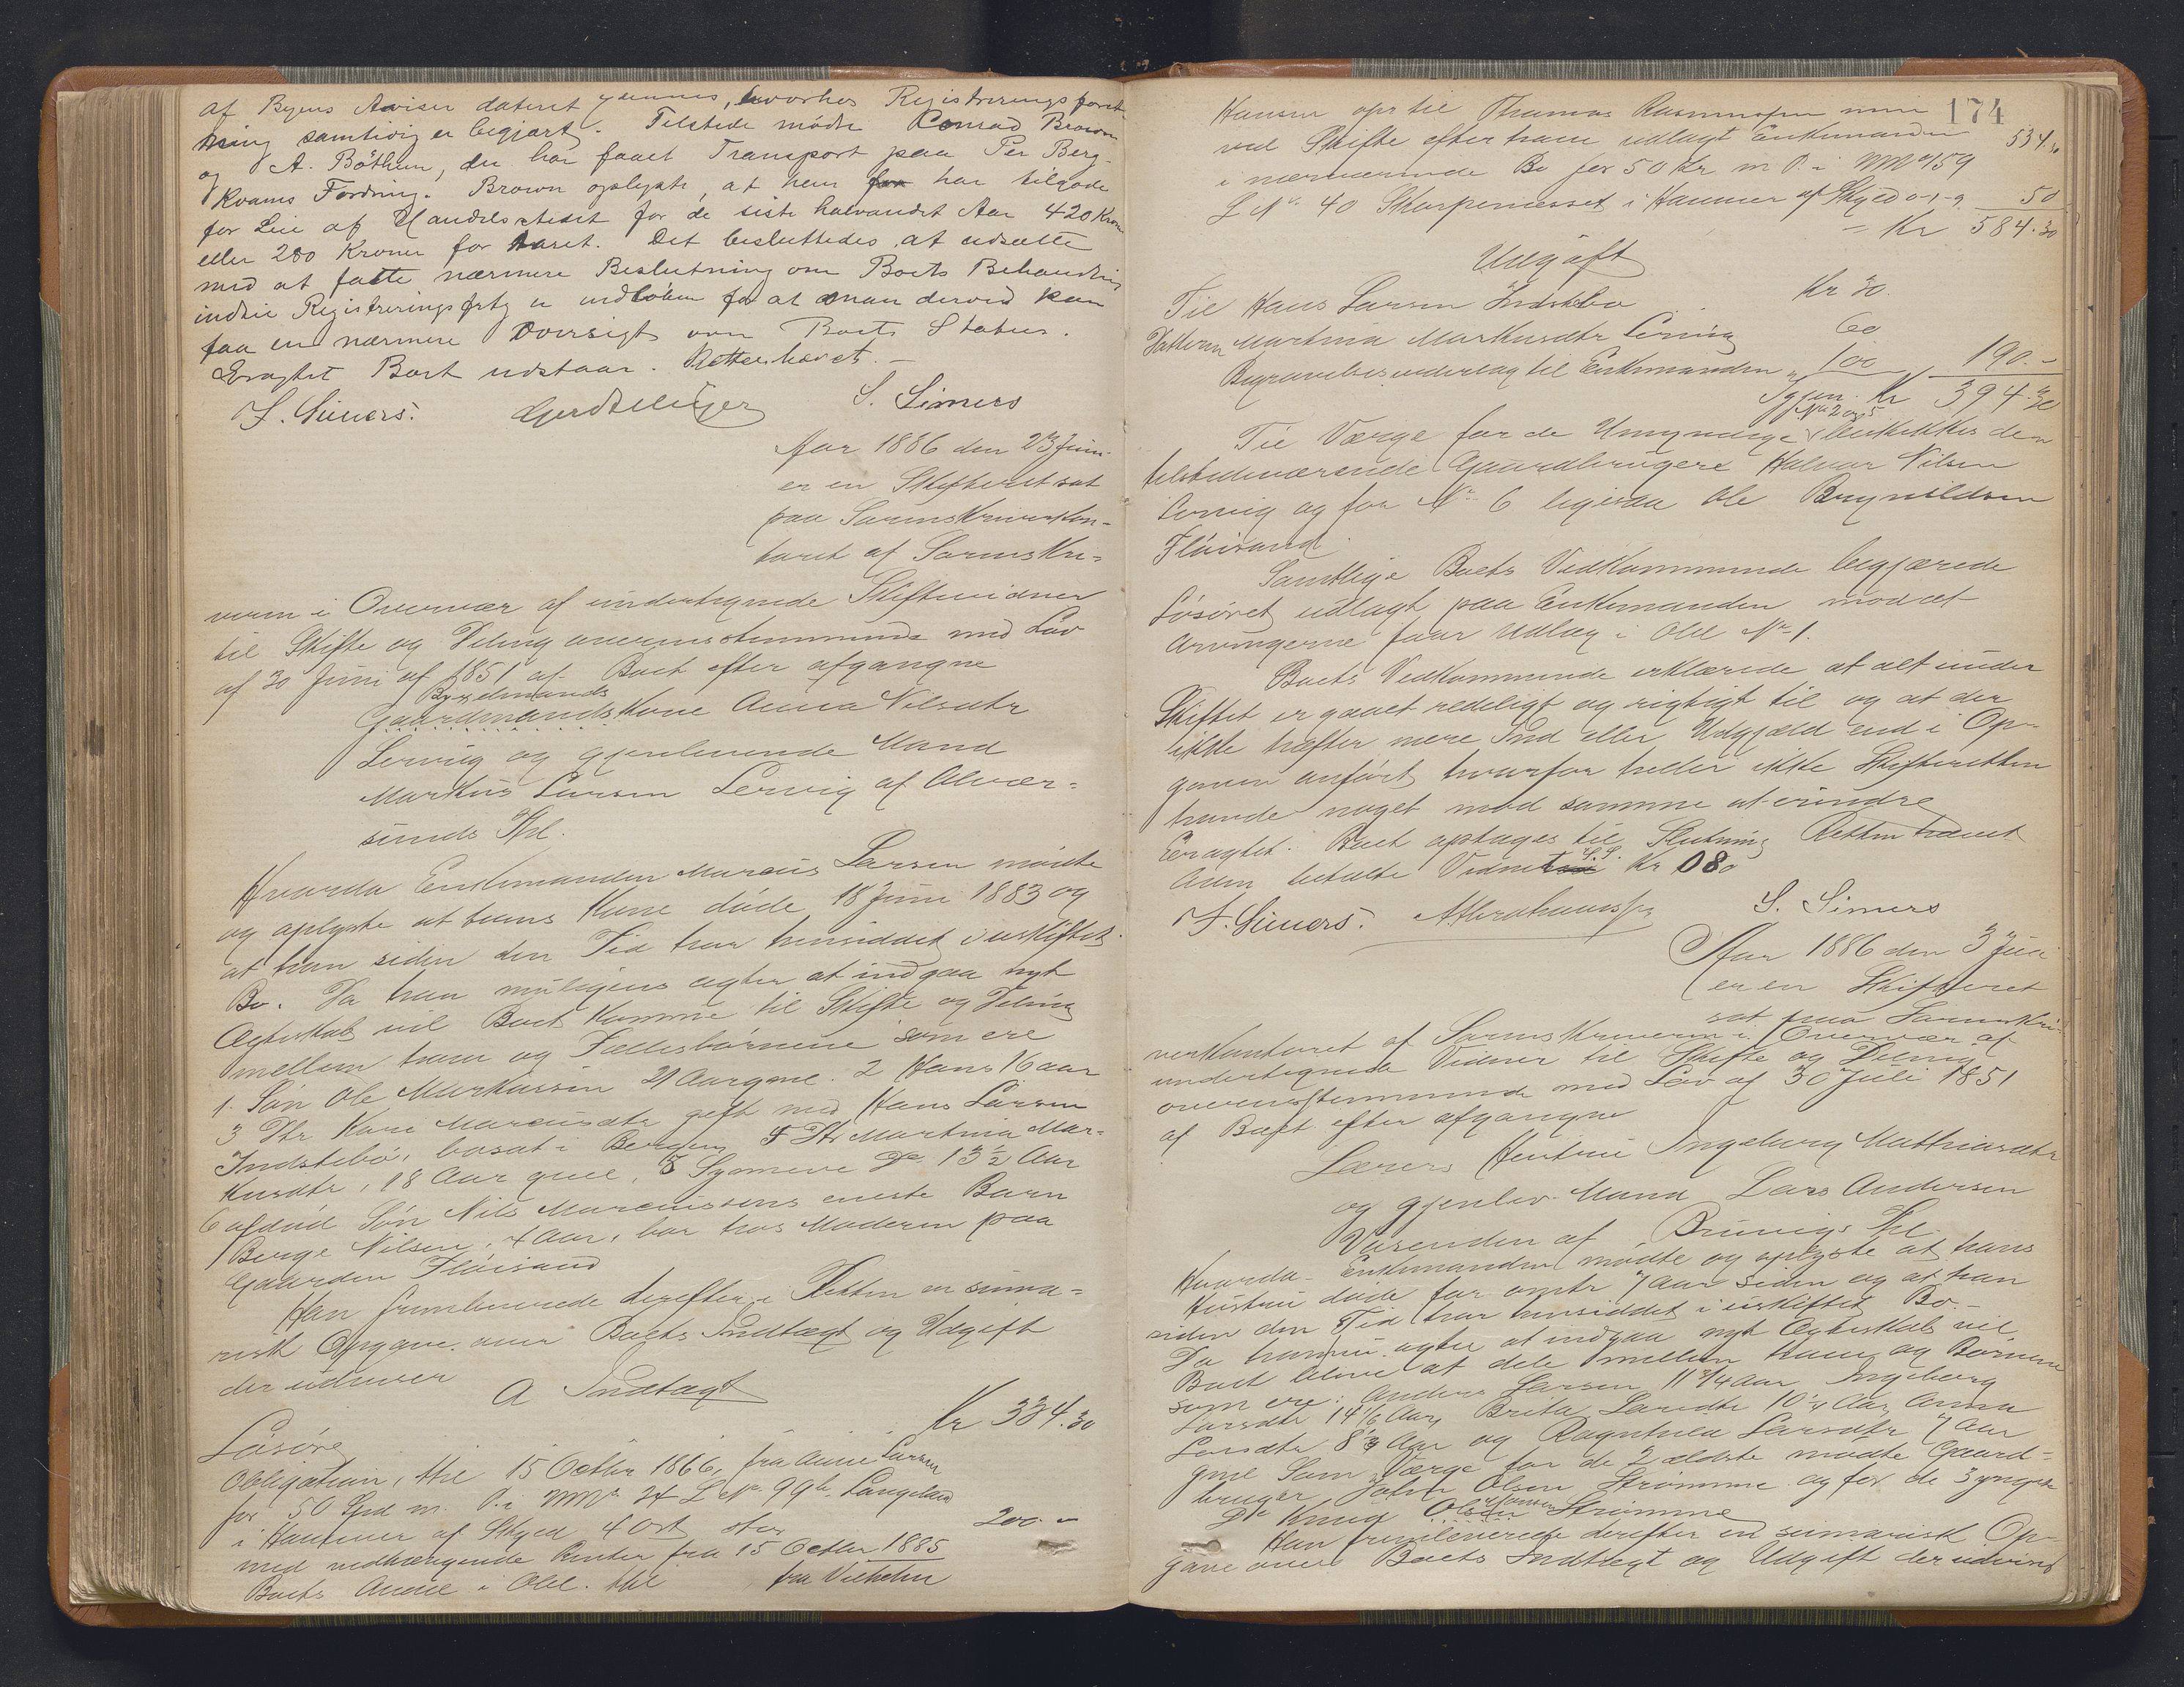 af Byens Aviser dateret ydermes, hvorhos Registreringsforret
ning samtidig er begjært. Tilstede mødte Conrad Brown
og A. Böthun, der har faaet Transport paa Per Berg-
kvams Fordring. Brown oplyste, at hun har tilgode
for Leie af Handelsstedet for de siste halvandet Aar 420 Kroner
eller 280 Kroner for Aaret. Det besluttedes at udsætte
med at fatte nærmere Beslutning om Boets Behandling
indtil Registreringsfrtg er indløben for at man derved kan
faa en nærmere Oversigt over Boets Status.
Eragtet Boet udstaar. Retten hævet. –
F. Simers. S. Simers
Aar 1886 den 23 Juni
er en Skifteret sat
paa Sorenskriverkon-
toret af Sorenskri-
veren i Overvær af undertegnede Skiftevidner
til Skifte og Deling overensstemmende med Lov
af 30 Juni af 1851 af Boet efter afgangne
Bygdemands
Gaardmandskone Anna Nilsdtr
Lervig og gjenlevende Mand
Markus Larsen Lervig af Alvær-
sunds Thl.
Hvorda Enkemanden Marcus Larsen mødte
og oplyste at hans Kone døde 18 Juni 1883 og
at han siden den Tid har hensiddet i uskiftet
Bo. Da han muligens agter at indgaa nyt
Ægteskab vil Boet komme til Skifte og Deling
mellem ham og Fællesbørnene som ere
1. Søn Ole Markussen 21 Aar gml. 2 Hans 16 aar
3 Dtr Kari Marcusdtr gift med Hans Larsen
Indstebø, bosat i Bergen 4 Dtr Martina Mar-
kusdtr, 18 Aar gml, 5 Synneve Do 13½ Aar
6 afdød Søn Nils Marcussens eneste Barn
Berge Nilsen, 4 Aar, bor hos Moderen paa
Gaarden Fløisand
Han fremleverede derefter i Retten en suma-
risk Opgave over Boets Indtægt og Udgift
der udviser
A Indtægt
Løsøre Kr 334.30
Obligation, thl 15 Octbr 1866, fra Anne Larsen
for 50 Spd m. P. i MNo 24 L No 99b Langeland
i Hammer af Skyld 4 Ort
med vedhængende Renter fra 15 Octbr 1885 200.–
Boets Andel i Obl. thl fra Vilhelm
174
Hansen opr til Thomas Rasmussen min
ved Skifte efter ham udlagt Enkemanden 534.30
i nærværende Bo for 50 Kr m P. i MNo 159
L No 40 Skarpenesset i Hammer af Skyld 0-1-9 50
– Kr 584.30
Udgift
Til Hans Larsen Indstebø Kr 30.
Datteren Martina Markusdtr Lervig 60
Begravelsesudlæg til Enkemanden " 100 190.–
Igjen Kr 394.30
No 2 og 5
Til Værge for de Umyndige beskikkes den
tilstedeværende Gaardbrugere Halvor Nilsen
Lervig og for No 6 ligesaa Ole Brynildsen
Fløisand.
Samtlige Boets Vedkommende begjærede
Løsøret udlagt paa Enkemanden mod at
Arvingerne faar Udlæg i Obl No 1.
Boets Vedkommende erklærede at alt under
Skiftet er gaaet redeligt og rigtigt til og at der
ikke hæfter mere Ind eller Udgjæld end i Op-
gaven anført hvorfor heller ikke Skifteretten
havde noget mod samme at erindre
Eragtet. Boet optages til Slutning Retten hævet
S.S.
Aden betalte Vidnet Kr 080
F. Simers. S. Simers
Aar 1886 den 3 Juli
er en Skifteret
sat paa Sorenskri-
verkontoret af Sorenskriveren i Overvær af
undertegnede Vidner til Skifte og Deling
overensstemmende med Lov af 30 Juli 1851
af Boet efter afgangne
Lærers Hustru Ingeborg Mathiasdtr
og gjenlev. Mand Lars Andersen
Varenden af Bruvigs Thl.
Hvorda Enkemanden mødte og oplyste at hans
Hustru døde for omtr 7 Aar siden og at han
siden den Tid har hensiddet i uskiftet Bo.–
Da han nu agter at indgaa nyt Ægteskab vil
Boet blive at dele mellem ham og Børnene
som ere: Anders Larsen 11 3/4 Aar Ingeborg
Larsdtr 14 1/6 Aar, Brita Larsdtr 10 1/4 Aar, Anna
Larsdtr 8 1/4 Aar og Ragnhild Larsdtr 7 Aar
gml Som Værge for de 2 ældste mødte Gaard-
bruger John Olsen Strømme og for de 3 yngste
Do Knud Olsen Strømme
Han fremleverede derefter en summarisk Op-
gave over Boets Indtægt og Udgift der udviser